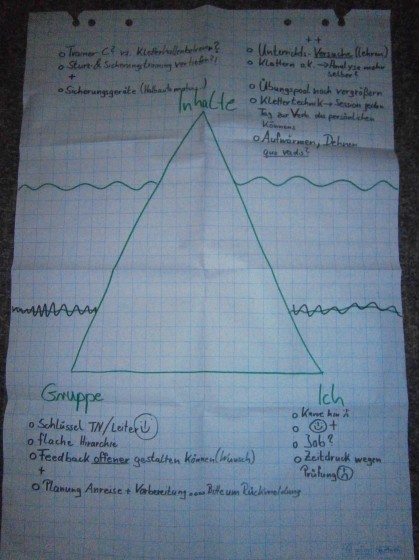 Trainer C? vs. Kletterhallenbetreuer?
Sturz & Sicherungstraining vertiefen?!
+
Sicherungsgeräte (Halbautomaten)
Inhalte
++
Unterrichts-Versuche (Lehren)
Klettern ok → Analyse mehr
selber?
Übungspool noch vergrößern
Klettertechnik → Session jeden
Tag zur Verb. des persönlichen
Könnens
Aufwärmen, Dehnen
quo vadis?
Gruppe
Schlüssel TN/Leiter
flache Hirarchie
Feedback offener gestalten können (Wunsch)
+
Planung Anreise + Vorbereitung Bitte um Rückmeldung
Ich
+
Job?
Zeitdruck wegen
Prüfung